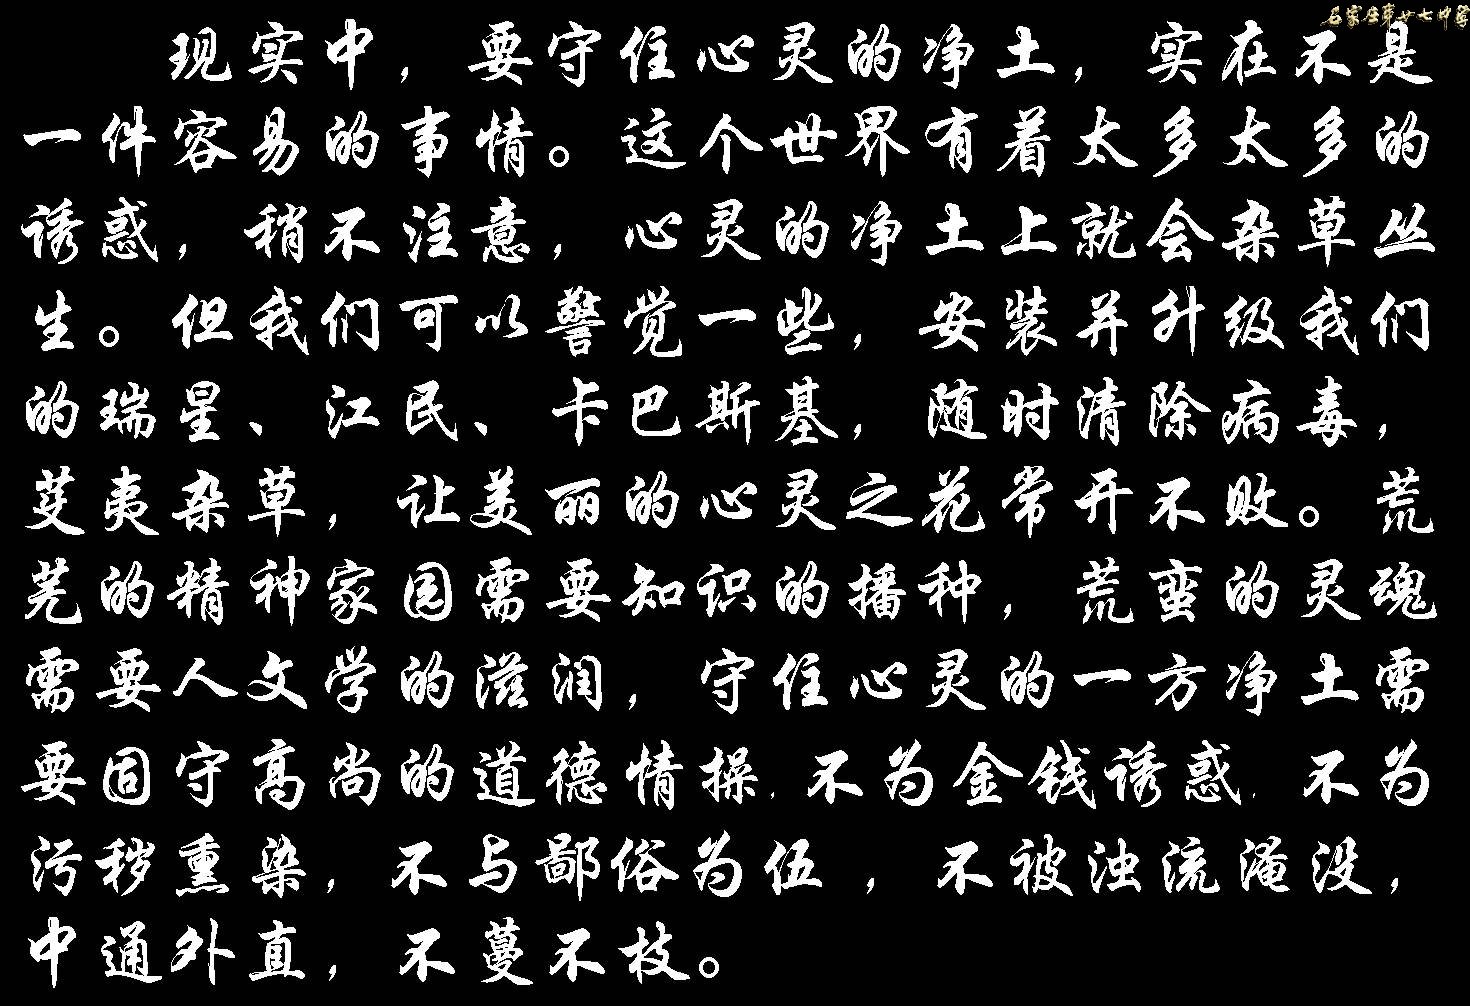 石家庄市廿七中学
现实中，要守住心灵的净土，实在不是
一件容易的事情。这个世界有着太多太多的
诱惑，稍不注意，心灵的净土上就会杂草丛
生。但我们可以警觉一些，安装并升级我们
的瑞星、江民、卡巴斯基，随时清除病毒，
芟夷杂草，让美丽的心灵之花常开不败。荒
芜的精神家园需要知识的播种，荒蛮的灵魂
需要人文学的滋润，守住心灵的一方净土需
要固守高尚的道德情操，不为金钱诱惑，不为
污秽熏染，不与鄙俗为伍，不被浊流淹没，
中通外直，不蔓不枝。